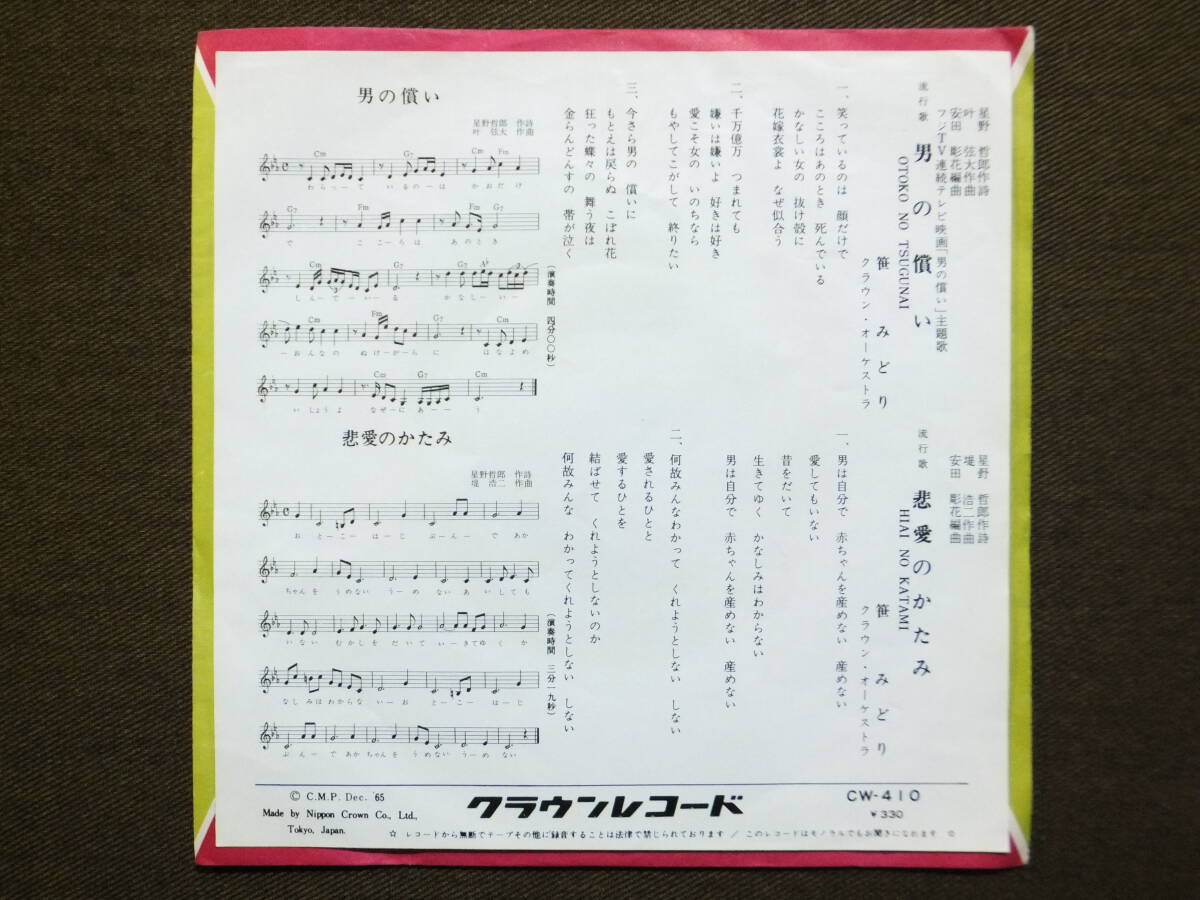 星野 哲郎作詩
叶 弦大作曲
安田 彰花編曲
フジTV連続テレビ映画「男の償い」主題歌
流行歌 男の償い
OTOKO NO TSUGUNAI
笹 みどり
クラウン・オーケストラ
一、笑っているのは 顔だけで
こころはあのとき 死んでいる
かなしい女の 抜け殻に
花嫁衣裳よ なぜ似合う
二、千万億万 つまれても
嫌いは嫌いよ 好きは好き
愛こそ女の いのちなら
もやしてこがして 終りたい
三、今さら男の 償いに
もとえは戻らぬ こぼれ花
狂った蝶々の 舞う夜は
金らんどんすの 帯が泣く
(演奏時間 四分〇〇秒)
男の償い
星野哲郎 作詩
叶 弦大 作曲
Cm G7 Fm Cm
わらって いるのーは かおだけ
G7 Fm
で こころは あのとき
Cm G7 A♭
しんでーいーる かなしーいー
Cm Fm G7 Cm
ーおんなの ぬけーがーらに はなよめ
Cm G7 Cm
いしょうよ なぜーにあーーう
星野 哲郎作詩
堤 浩二作曲
安田 彰花編曲
流行歌 悲愛のかたみ
HIAI NO KATAMI
笹 みどり
クラウン・オーケストラ
一、男は自分で 赤ちゃんを産めない 産めない
愛してもいない
昔をだいて
生きてゆく かなしみはわからない
男は自分で 赤ちゃんを産めない 産めない
二、何故みんなわかって くれようとしない しない
愛されるひとと
愛するひとを
結ばせて くれようとしないのか
何故みんな わかってくれようとしない しない
(演奏時間 三分一九秒)
悲愛のかたみ
星野哲郎 作詩
堤 浩二 作曲
おとーこーはーじ ぶんーであか
ちゃんを うめないうーめ ないあいしても
いない むかしをだいていーきてゆくか
なしみはわからな いーおとーこーはーじ
ぶんーであかちゃんを うめないうーめない
© C.M.P. Dec. '65
Made by Nippon Crown Co., Ltd.,
Tokyo, Japan.
クラウンレコード
CW-410
¥330
☆ レコードから無断でテープその他に録音することは法律で禁じられております / このレコードはモノラルでもお聞きになれます ☆